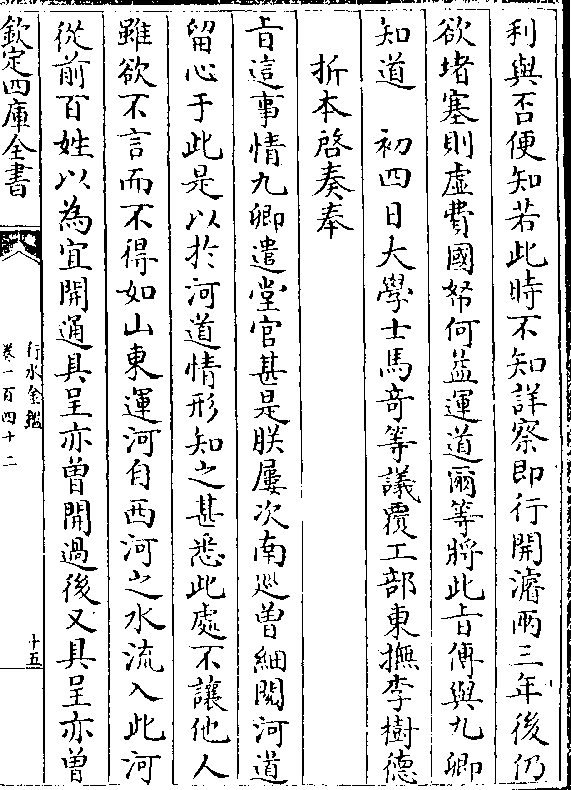 利與否便知若此時不知詳察即行開濬兩三年後仍
欲堵塞則虛費國帑何益運道爾等將此㫖傳與九卿
知道　初四日大學士馬竒等議覆工部東撫李樹德
折本啓奏奉
㫖這事情九卿遣堂官甚是朕屢次南巡曽細閱河道
留心于此是以於河道情形知之甚悉此處不讓他人
雖欲不言而不得如山東運河自西河之水流入此河
從前百姓以為宜開通具呈亦曽開過後又具呈亦曽
欽定四庫全書
行水金鑑
卷一百四十二
十五